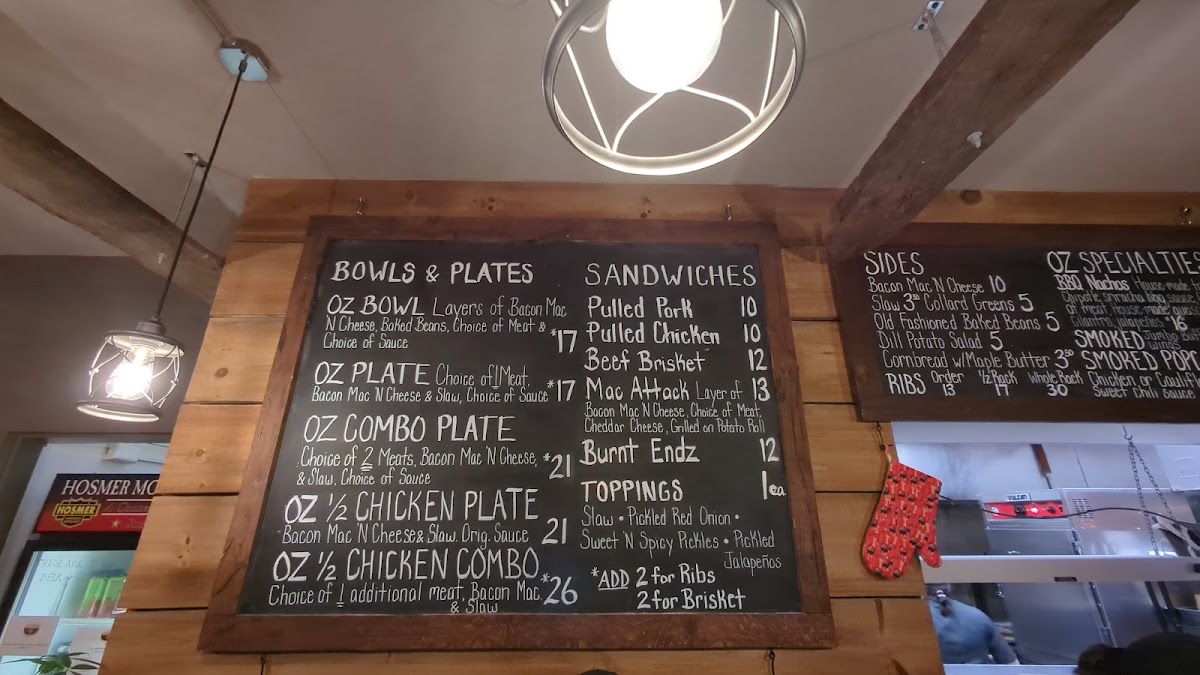 BOWLS & PLATES
OZ BOWL Layers of Bacon Mac
N Cheese, Baked Beans, Choice of Meat &
Choice of Sauce
*17
OZ PLATE Choice of 1 Meat,
Bacon Mac 'N Cheese & Slaw, Choice of Sauce *17
OZ COMBO PLATE
Choice of 2 Meats, Bacon Mac 'N Cheese,
& Slaw, Choice of Sauce
*21
OZ ½ CHICKEN PLATE
Bacon Mac 'N Cheese & Slaw. Orig. Sauce 21
OZ ½ CHICKEN COMBO
Choice of 1 additional meat, Bacon Mac
& Slaw
*26
SANDWICHES
Pulled Pork 10
Pulled Chicken 10
Beef Brisket 12
Mac Attack Layer of 13
Bacon Mac N Cheese, Choice of Meat,
Cheddar Cheese, Grilled on Potato Roll
Burnt Endz 12
TOPPINGS 1ea
Slaw • Pickled Red Onion •
Sweet 'N Spicy Pickles • Pickled
Jalapeños
*ADD 2 for Ribs
2 for Brisket
SIDES
Bacon Mac N Cheese 10
Slaw 3.50 Collard Greens 5
Old Fashioned Baked Beans 5
Dill Potato Salad 5
Cornbread w/Maple Butter 3.50
RIBS Order ½ Rack whole Rack
13 17 30
OZ SPECIALTIES
BBQ Nachos House made
Chipotle sriracha bbq
of meat, House made
jalapeños 16
SMOKED
SMOKED POP
Chicken or
Sweet Chili Sauce
HOSMER MO
HOSMER
VULCAN